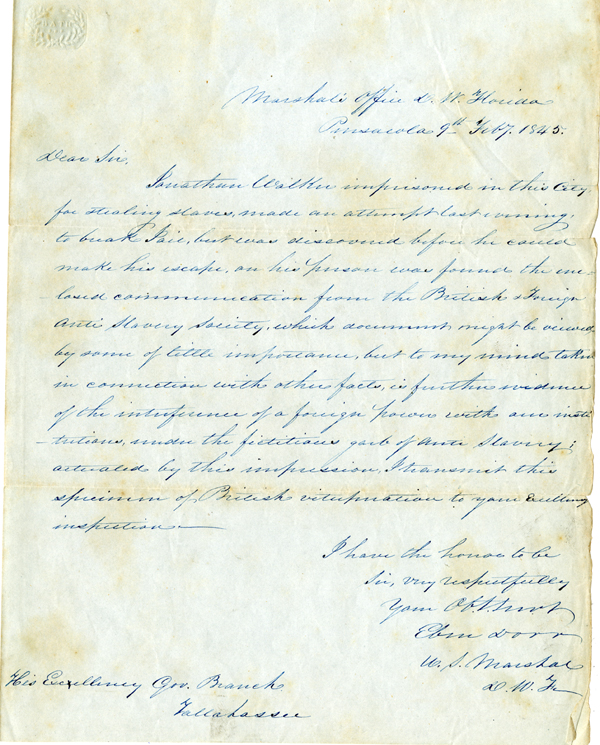 Marshal's Office D. W. Florida
Pensacola 9th Feby. 1845.
Dear Sir.
Jonathan Walker imprisoned in this City,
for stealing slaves, made an attempt last evening,
to break Jail, but was discovered before he could
make his escape, on his person was found the en-
-closed communication from the British & Foreign
Anti Slavery Society, which document might be viewed,
by some of little importance, but to my mind taken
in connection with other facts, is further evidence
of the interference of a foreign power with our insti
-tutions, under the fictitious garb of Anti Slavery;
actuated by this impression, I transmit this
specimen of British vituperation to your Excellency
inspection —
I have the honor to be
Sir, very respectfully
Your Obt. Servt
Eben Dorr
U. S. Marshal
D. W. Fa
His Excellency Gov. Branch
Tallahassee